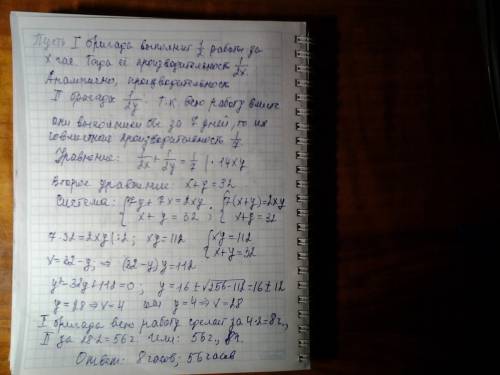 Пусть I бригада выполнит 1/2 работы за
x час. Тогда её производительность 1/2x.
Аналогично, производительность
II бригады 1/2y. Т.к. всю работу вместе
они выполнили бы за 7 дней, то их
совместная производительность 1/7.
Уравнение: 1/2x + 1/2y = 1/7 | · 14xy
Второе уравнение: x+y=32
Система: {7y+7x=2xy {7(x+y)=2xy
{x+y=32 ; {x+y=32
7·32=2xy|:2; xy=112 {xy=112
{x+y=32
x=32-y; ⇒ (32-y)y=112
y²-32y+112=0; y=16±√256-112=16±12
y=28⇒x=4 или y=4⇒x=28
I бригада всю работу сделает за 4·2=8ч.,
II за 28·2=56ч. или: 56ч., 8ч.
Ответ: 8 часов; 56 часов